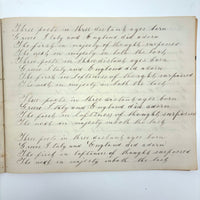 Three poets in three distant ages born
Greece Italy and England did adorn
The first in majesty of thought surpassed
The next in majesty in both the last
Three poets in three distant ages born
Greece Italy and England did adorn
The first in loftiness of thought surpassed
The next in majesty in both the last
Three poets in three distant ages born
Greece Italy and England did adorn
The first in loftiness of thought surpassed
The next in majesty in both the last
Three poets in three distant ages born
Greece Italy and England did adorn
The first in loftiness of thought surpassed
The next in majesty in both the last